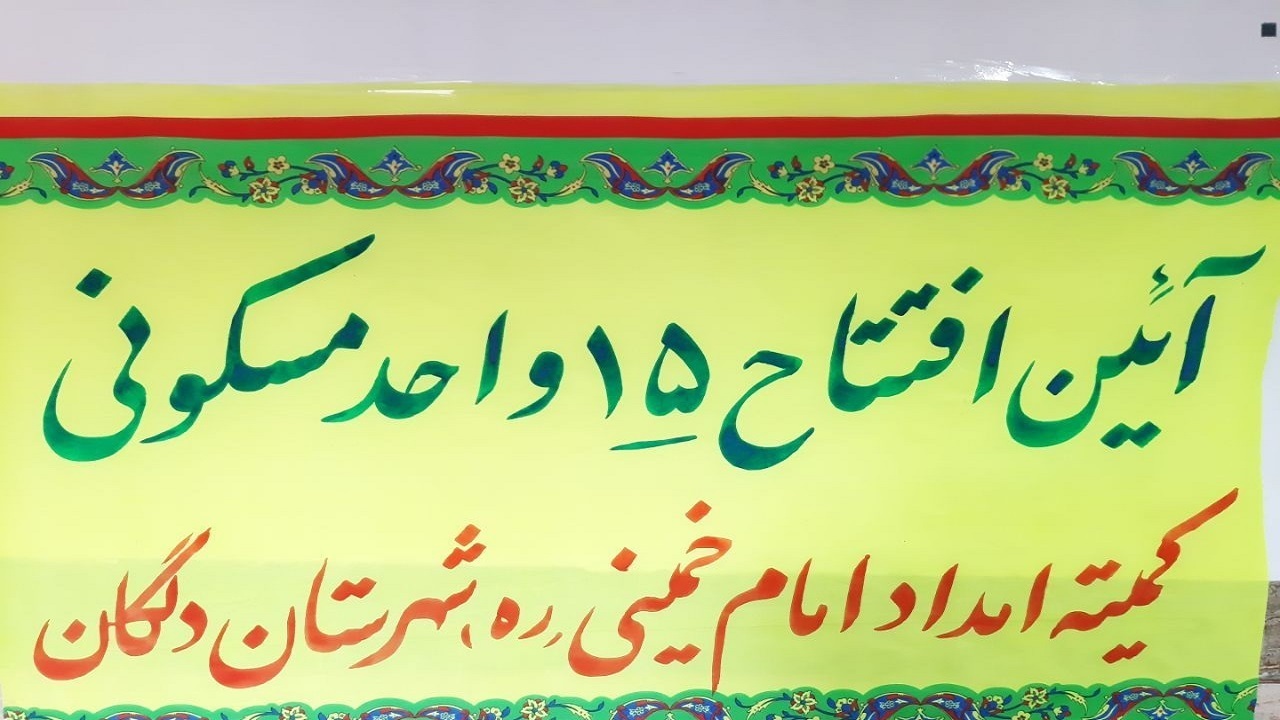 آئین افتتاح ۱۵ واحد مسکونی
کمیته امداد امام خمینی (ره) شهرستان دلگان